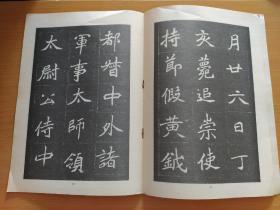 月廿六日丁
亥薨追崇使
持節假黃鉞
都督中外諸
軍事太師領
太尉公侍中